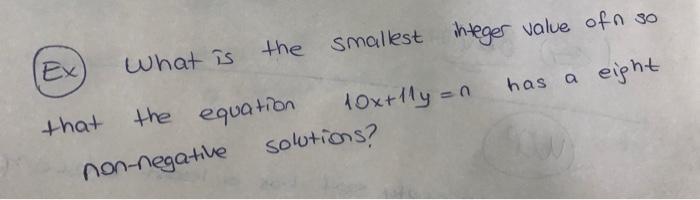 Ex What is the smallest integer value of n so
that the equation 10x+11y=n has a eight
non-negative solutions?